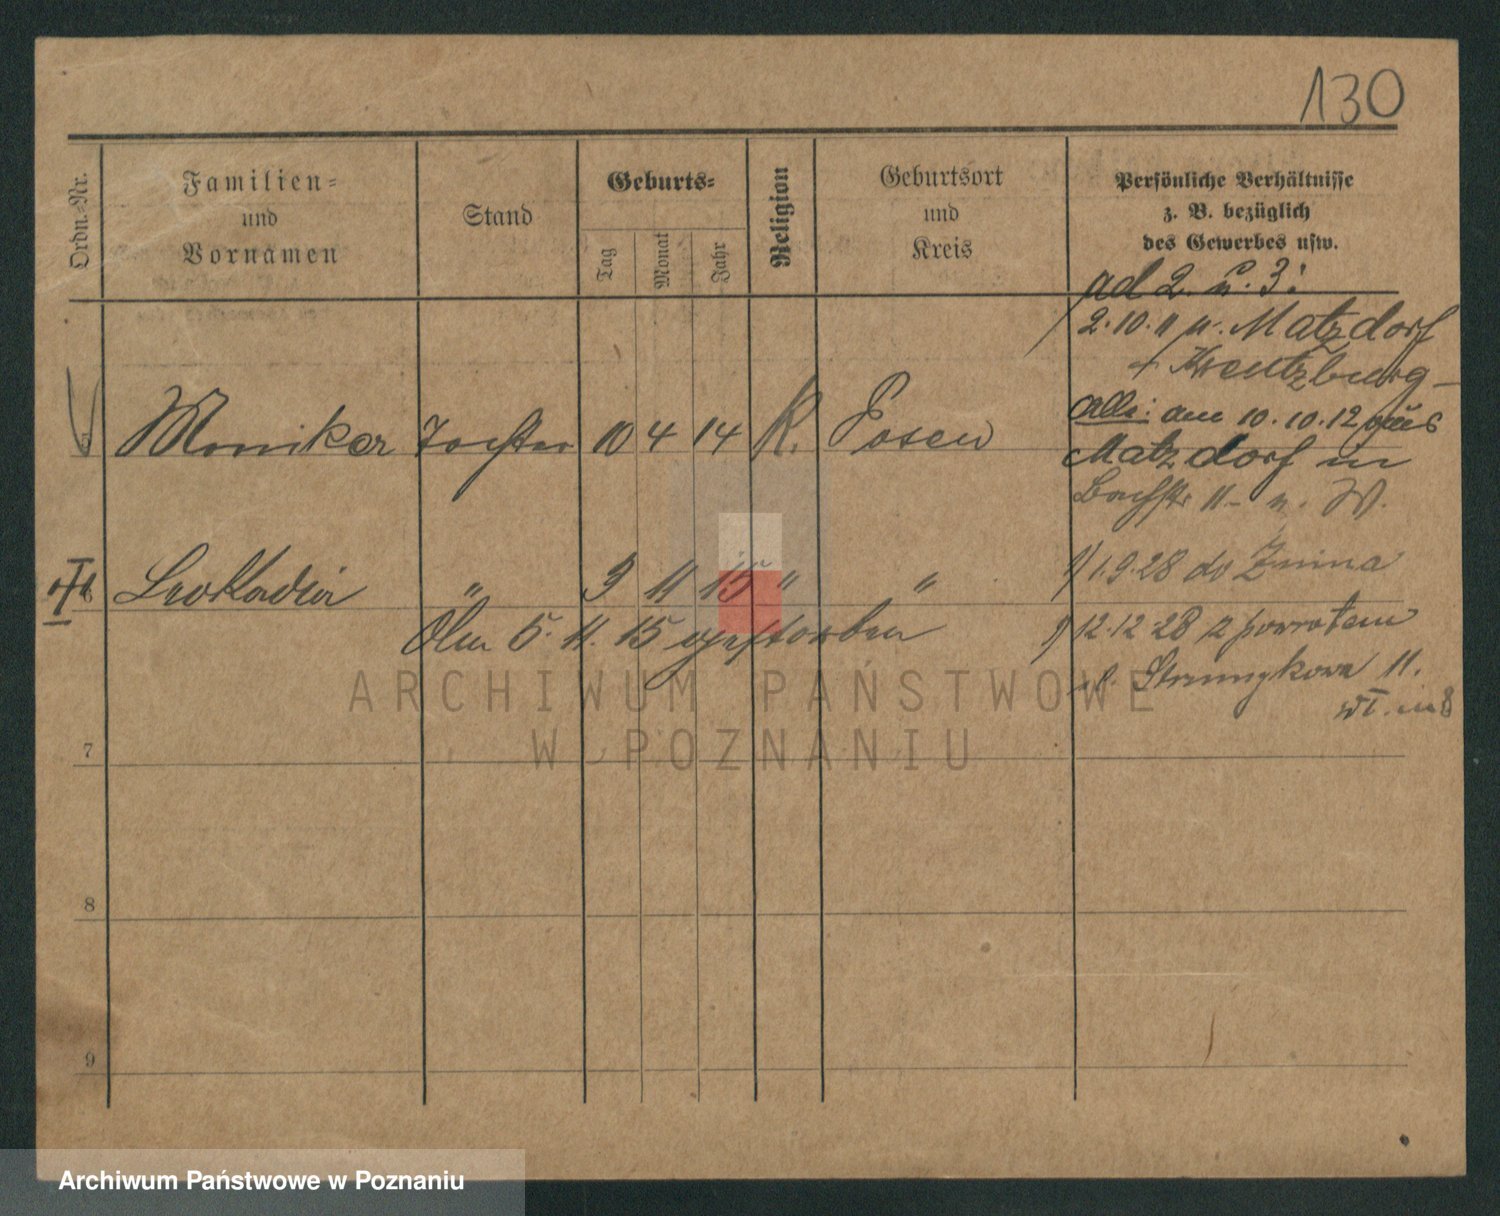 130
Ordn.-Nr.
Familien-
und
Vornamen
Stand
Geburts-
Tag
Monat
Jahr
Religion
Geburtsort
und
Kreis
Persönliche Verhältnisse
z. B. bezüglich
des Gewerbes usw.
ad 2. u. 3:
2.10.11 n. Matzdorf
Kreutzburg
Monika Tochter 10 4 14 K. Posen
Alle: am 10.10.12 aus
Matzdorf in
Bachstr 11 - n. W.
6 Leokadia " 3 11 15 " "
1.9.28 do Żnina
Am 5. 11. 15 gestorben
12.12.28 z powrotem
Strumykowa 11.
7
8
9
ARCHIWUM PAŃSTWOWE
W POZNANIU
Archiwum Państwowe w Poznaniu